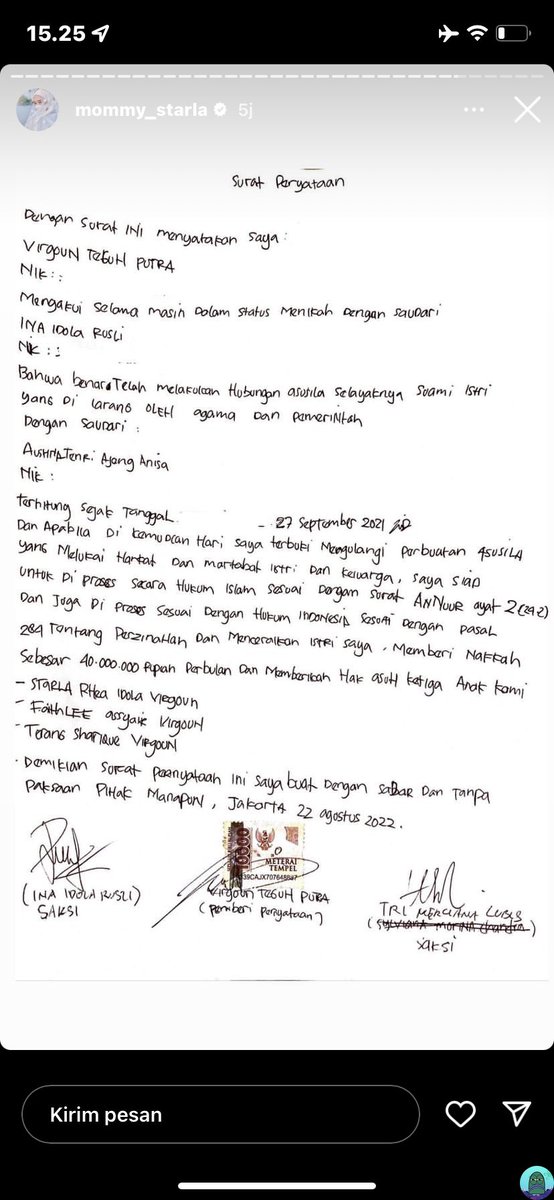 15.25
mommy_starla 5j
Surat Peryataan
Dengan surat ini menyatakan saya :
VIRGOUN TEGUH PUTRA
NIK : :
Mengakui selama masih dalam status menikah dengan saudari
INA IDOLA RUSLI
NIK : :
Bahwa benar telah melakukan hubungan asusila selayaknya suami istri
yang di larang oleh agama dan pemerintah
Dengan saudari :
Tenri Ajeng Anisa
NIK :
terhitung sejak tanggal - 27 September 2021
Dan apabila di kemudian hari saya terbukti mengulangi perbuatan asusila
yang melukai harkat dan martabat istri dan keluarga, saya siap
untuk di proses secara hukum islam sesuai dengan surat ANNUUR ayat 2 (24:2)
Dan juga di proses sesuai dengan hukum indonesia sesuai dengan pasal
284 tentang perzinahan dan menceraikan istri saya, memberi nafkah
sebesar 40.000.000 rupiah perbulan dan memberikan hak asuh ketiga anak kami
- STARLA RHEA IDOLA VIRGOUN
- FAITHLEE ASSYAIK VIRGOUN
- Terans Sharique VIRGOUN
. Demikian surat pernyataan ini saya buat dengan sadar dan tanpa
paksaan pihak manapun, Jakarta 22 agustus 2022.
10000
METERAI
TEMPEL
(INA IDOLA RUSLI)
SAKSI
VIRGOUN TEGUH PUTRA
(pemberi peryataan)
TRI LUBIS
SAKSI
Kirim pesan